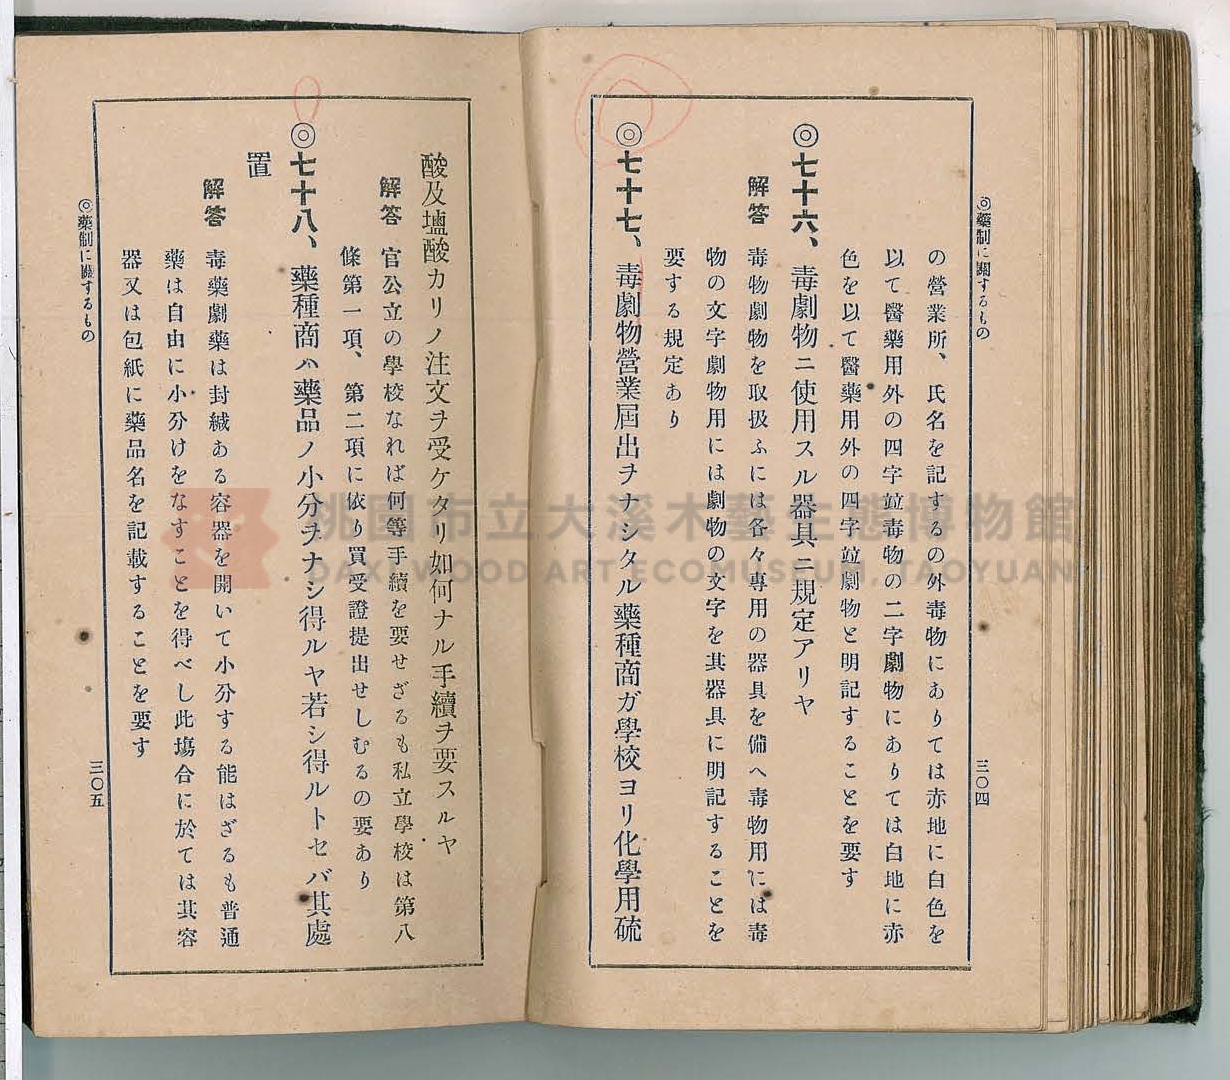 ◎藥制に關するもの
三〇四
の營業所、氏名を記するの外毒物にありては赤地に白色を
以て醫藥用外の四字竝毒物の二字劇物にありては白地に赤
色を以て醫藥用外の四字竝劇物と明記することを要す
◎七十六、毒劇物ニ使用スル器具ニ規定アリヤ
解答 毒物劇物を取扱ふには各々專用の器具を備へ毒物用には毒
物の文字劇物用には劇物の文字を其器具に明記することを
要する規定あり
◎七十七、毒劇物營業屆出ヲナシタル藥種商ガ學校ヨリ化學用硫
酸及塩酸カリノ注文ヲ受ケタリ如何ナル手續ヲ要スルヤ
解答 官公立の學校なれば何等手續を要せざるも私立學校は第八
條第一項、第二項に依り買受證提出せしむるの要あり
◎七十八、藥種商ハ藥品ノ小分ヲナシ得ルヤ若シ得ルトセバ其處
置
解答 毒藥劇藥は封緘ある容器を開いて小分する能はざるも普通
藥は自由に小分けをなすことを得べし此塲合に於ては其容
器又は包紙に藥品名を記載することを要す
◎藥制に關するもの
三〇五
桃園市立大溪木藝生態博物館
DAXI WOOD ART ECOMUSEUM, TAOYUAN